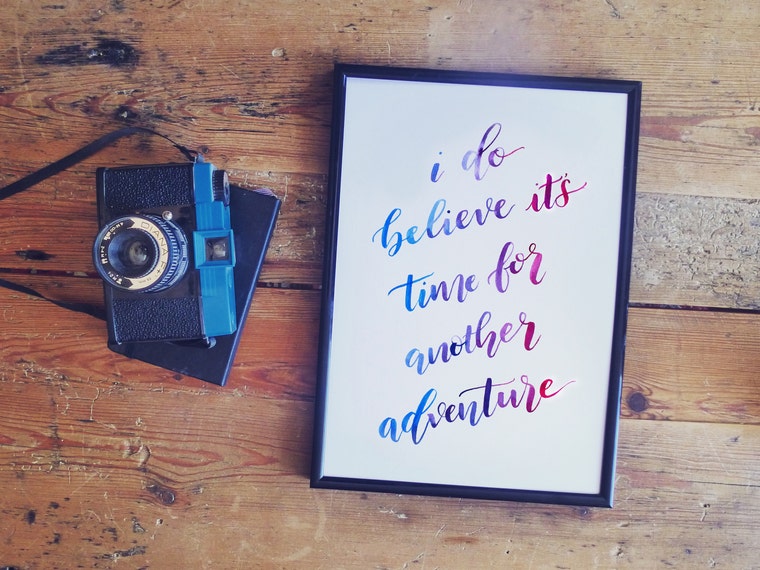 DIANA F+
i do
believe it's
time for
another
adventure